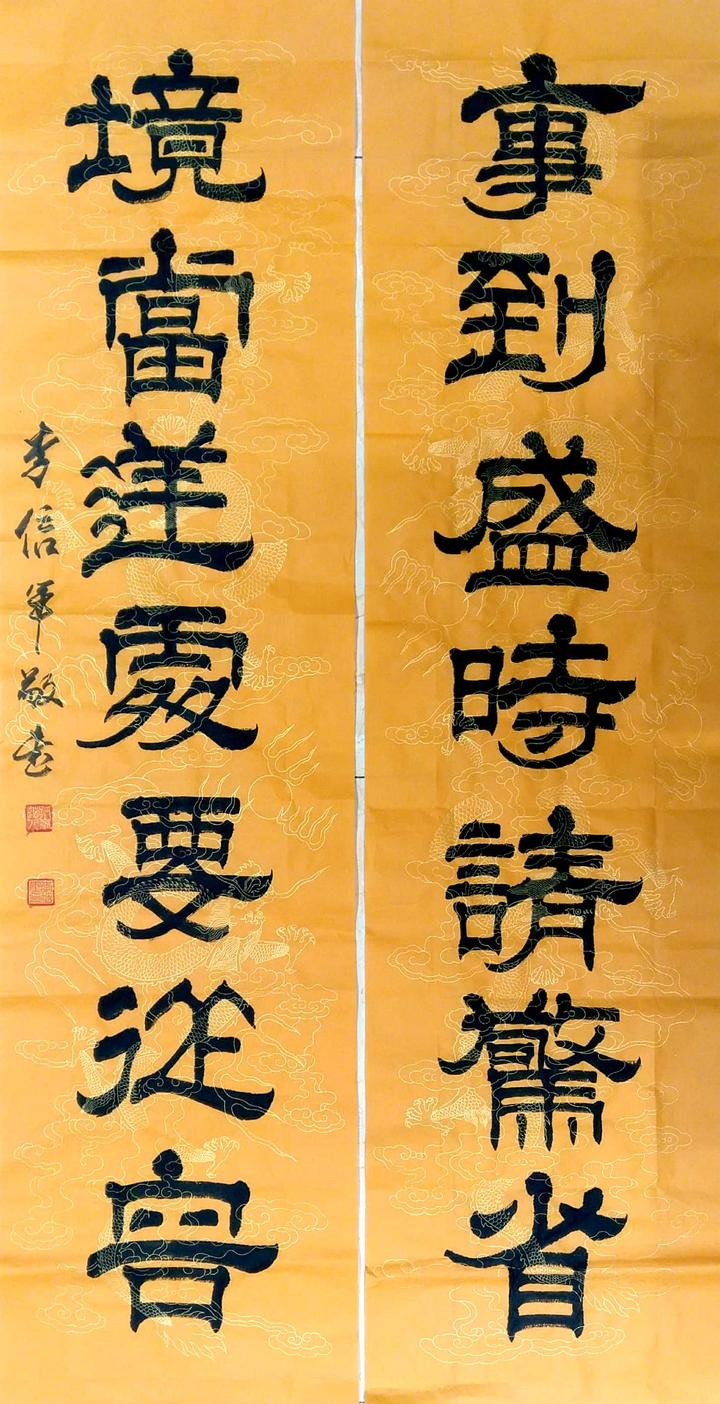 事到盛時請驚省
境當逆處要從容
李信軍敬書